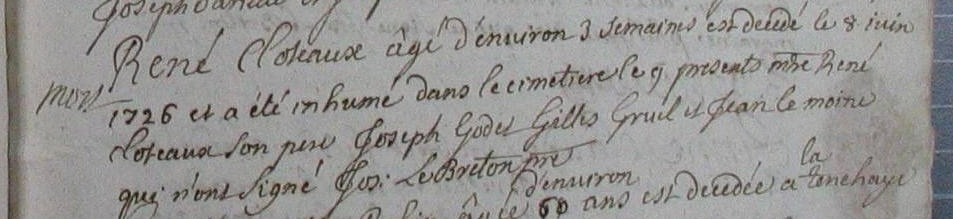 Joseph
René Cloteaux âgé d'environ 3 semaines est decedé le 8 iuin
mort
1726 et a été inhumé dans le cimetiere le 9 presents mre René
Cloteaux son pere Joseph Godet Gilles Gruel et Jean le moine
qui n'ont signé Jos: LeBreton pre
d'environ la
âgée 60 ans est decedée a tonehaye